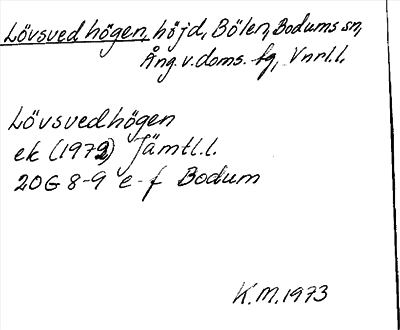 Lövsvedhögen, höjd, Bölen, Bodums sn,
Ång. v. doms. fg, Vnrl.l.
Lövsvedhögen
ek (1972) Jämtl.l.
20G 8-9 e-f Bodum
K.M. 1973